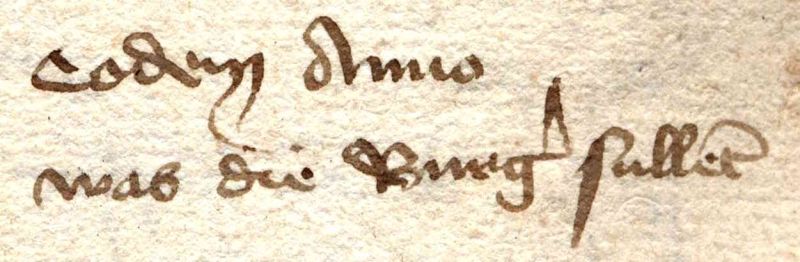 Eodem Anno
was die Burg sullet